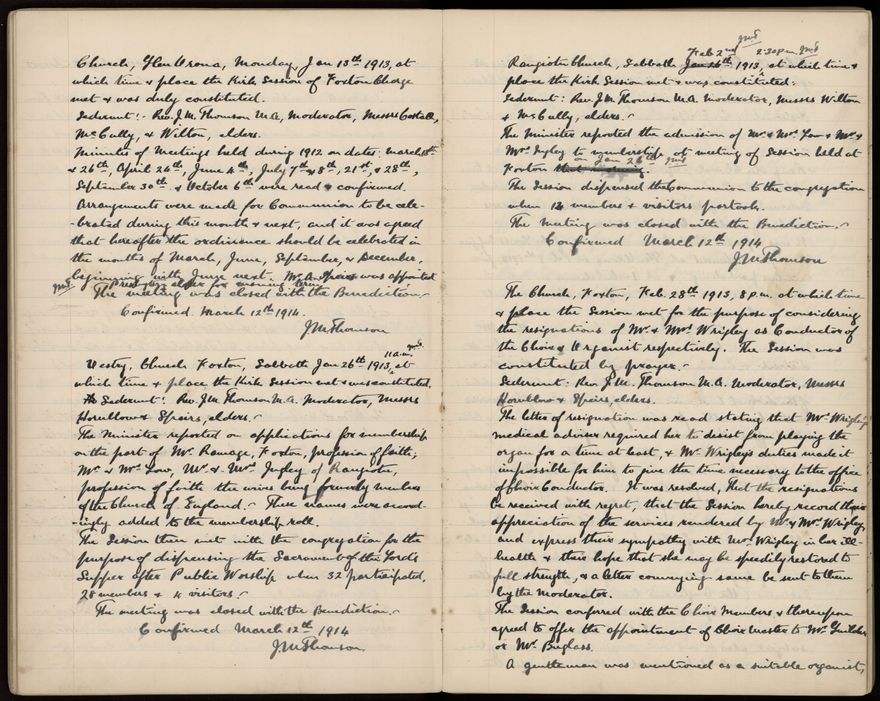 Church, Glen Orona, Monday, Jan 13th 1913, at
which time & place the Kirk Session of Foxton Charge
met & was duly constituted.
Sederunt:- Rev. J. M. Thomson M.A., Moderator, Messrs
McCully, & Wilton, elders.
Minutes of Meetings held during 1912 on dates: March
& 26th, April 24th, June 4th, July 7th & 8th, 21st & 28th,
September 30th & October 6th were read & confirmed.
Arrangements were made for Communion to be cele-
-brated during this month & next, and it was agreed
that hereafter the ordinance should be celebrated in
the months of March, June, September, & December,
beginning with June next. Mr. A. Speirs was appointed
Presbytery elder for ensuing term.
JMT
The meeting was closed with the Benediction.
Confirmed March 12th 1914.
J M Thomson
Church Foxton, Sabbath Jan 26th 1913, 11 a.m. at
which time & place the Kirk Session met & was constituted.
Sederunt: Rev. J. M. Thomson M.A. Moderator, Messrs
Hornblow & Speirs, elders.
The Minister reported on applications for membership
on the part of Mr. Ramage, Foxton, profession of faith;
Mr. & Mrs. Low, Mr. & Mrs. Ingley of Rangiotu,
profession of faith the wives being formerly members
of the Church of England. These names were accord-
-ingly added to the membership roll.
The Session then met with the congregation for the
purpose of dispensing the Sacrament of the Lord's
Supper after Public Worship when 32 participated,
28 members & 4 visitors.
The meeting was closed with the Benediction.
Confirmed March 12th 1914
J M Thomson.
Feb 2nd JMT 2.30 p.m. JMT
Rangiotu Church, Sabbath Jan 26th 1913, at which time &
place the Kirk Session met & was constituted:
Sederunt: Rev. J. M. Thomson M.A. Moderator, Messrs Wilton
& McCully, elders.
The Minister reported the admission of Mr. & Mrs. Low & Mr. &
Mrs. Ingley to membership at meeting of Session held at
Foxton on Jan 26th JMT
The Session dispensed the Communion to the congregation
when 12 members & visitors partook.
The Meeting was closed with the Benediction.
Confirmed March 12th 1914
J M Thomson
The Church, Foxton, Feb. 28th 1913, 8 p.m. at which time
& place the Session met for the purpose of considering
the resignations of Mr. & Mrs. Wrigley as Conductor of
the Choir & Organist respectively. The Session was
constituted by prayer.
Sederunt: Rev. J. M. Thomson M.A. Moderator, Messrs
Hornblow & Speirs, elders.
The letter of resignation was read stating that Mrs. Wrigley's
medical adviser required her to desist from playing the
organ for a time at least, & Mr. Wrigley's duties made it
impossible for him to give the time necessary to the office
of Choir Conductor. It was resolved, That the resignations
be received with regret, that the Session hereby record their
appreciation of the services rendered by Mr. & Mrs. Wrigley,
and express their sympathy with Mrs. Wrigley in her ill-
health & their hope that she may be speedily restored to
full strength, & a letter conveying same be sent to them
by the moderator.
The Session conferred with the Choir Members & thereupon
agreed to offer the appointment of Choir Master to Mr.
or Mr. Buglass.
A gentleman was mentioned as a suitable organist,